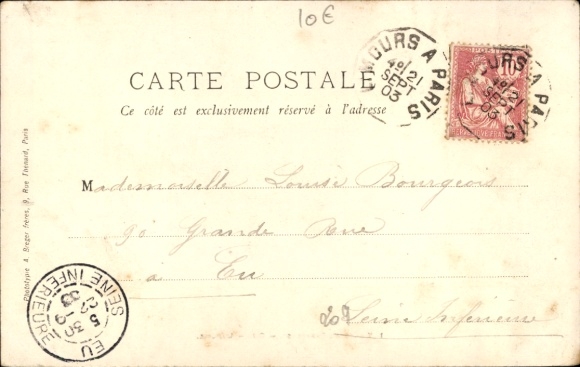 10€
CARTE POSTALE
Ce côté est exclusivement réservé à l'adresse
OURS A PARIS
4e/21
SEPT
03
POSTES
10
URS A PARIS
Mademoiselle Louise Bourgeois
90 Grande Rue
à Eu
Seine Inférieure
SEINE INFERIEURE
5 30
EU
Phototypie A. Breger frères, 9, Rue Thénard, Paris